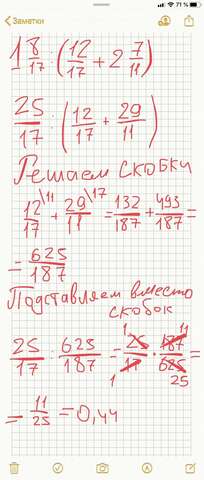 71 %
Заметки
1 8/17 : (12/17 + 2 7/11)
25/17 : (12/17 + 29/11)
Решаем скобки
12/17 \11 + 29/11 \17 = 132/187 + 493/187 =
= 625/187
Подставляем вместо
скобок
25/17 : 625/187 = 25/17 · 187/625 =
1 11
1 25
= 11/25 = 0,44